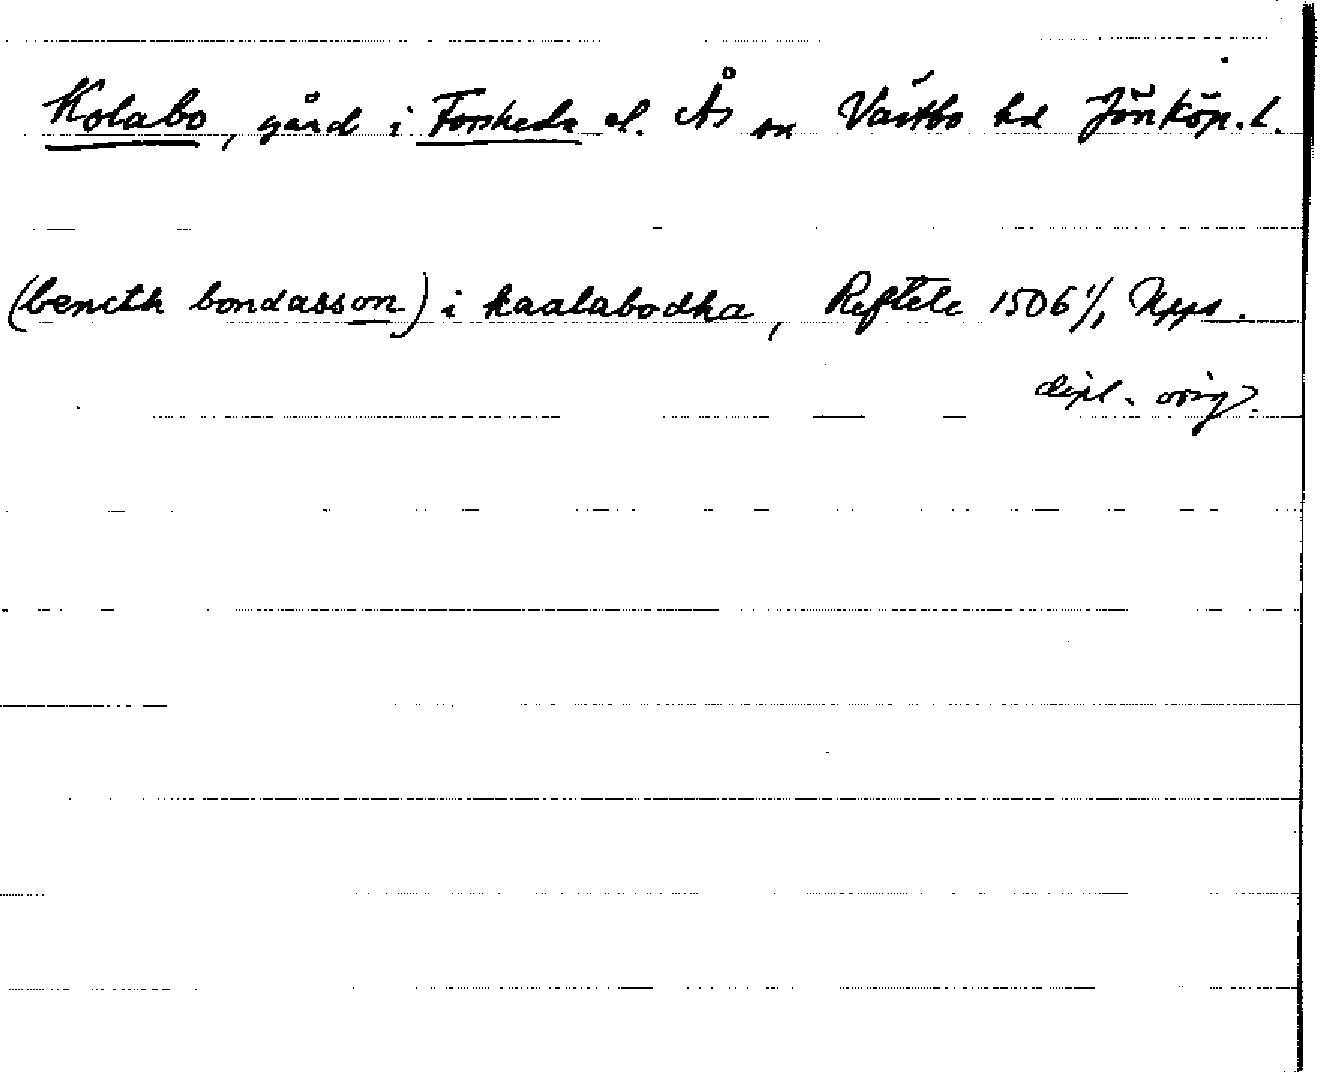 Kolabo, gård i Forsheda el. Ås sn Västbo hd Jönköp. l.
(bencth bondasson) i kaalabodha, Reftele 1506 1/1 Upps.
dipl. orig.